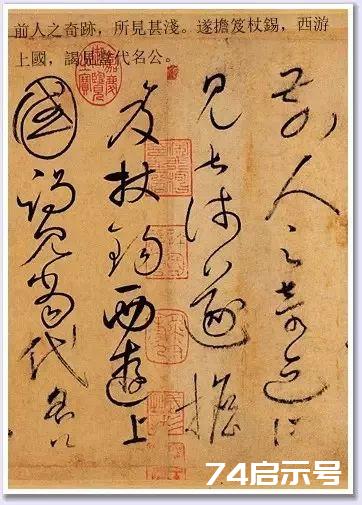 前人之奇跡,所見甚淺。遂擔笈杖錫,西游
上國,謁見當代名公。
前人之奇迹所
見甚淺遂擔
笈杖錫西遊上
國謁見當代名公
74启示号